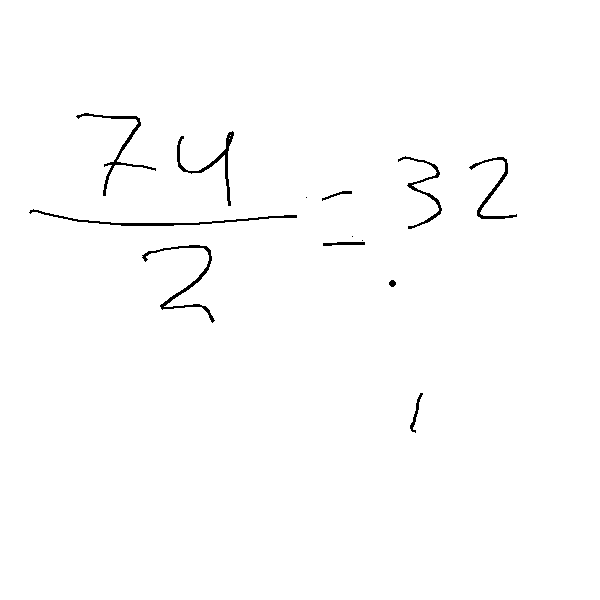 74/2 = 32